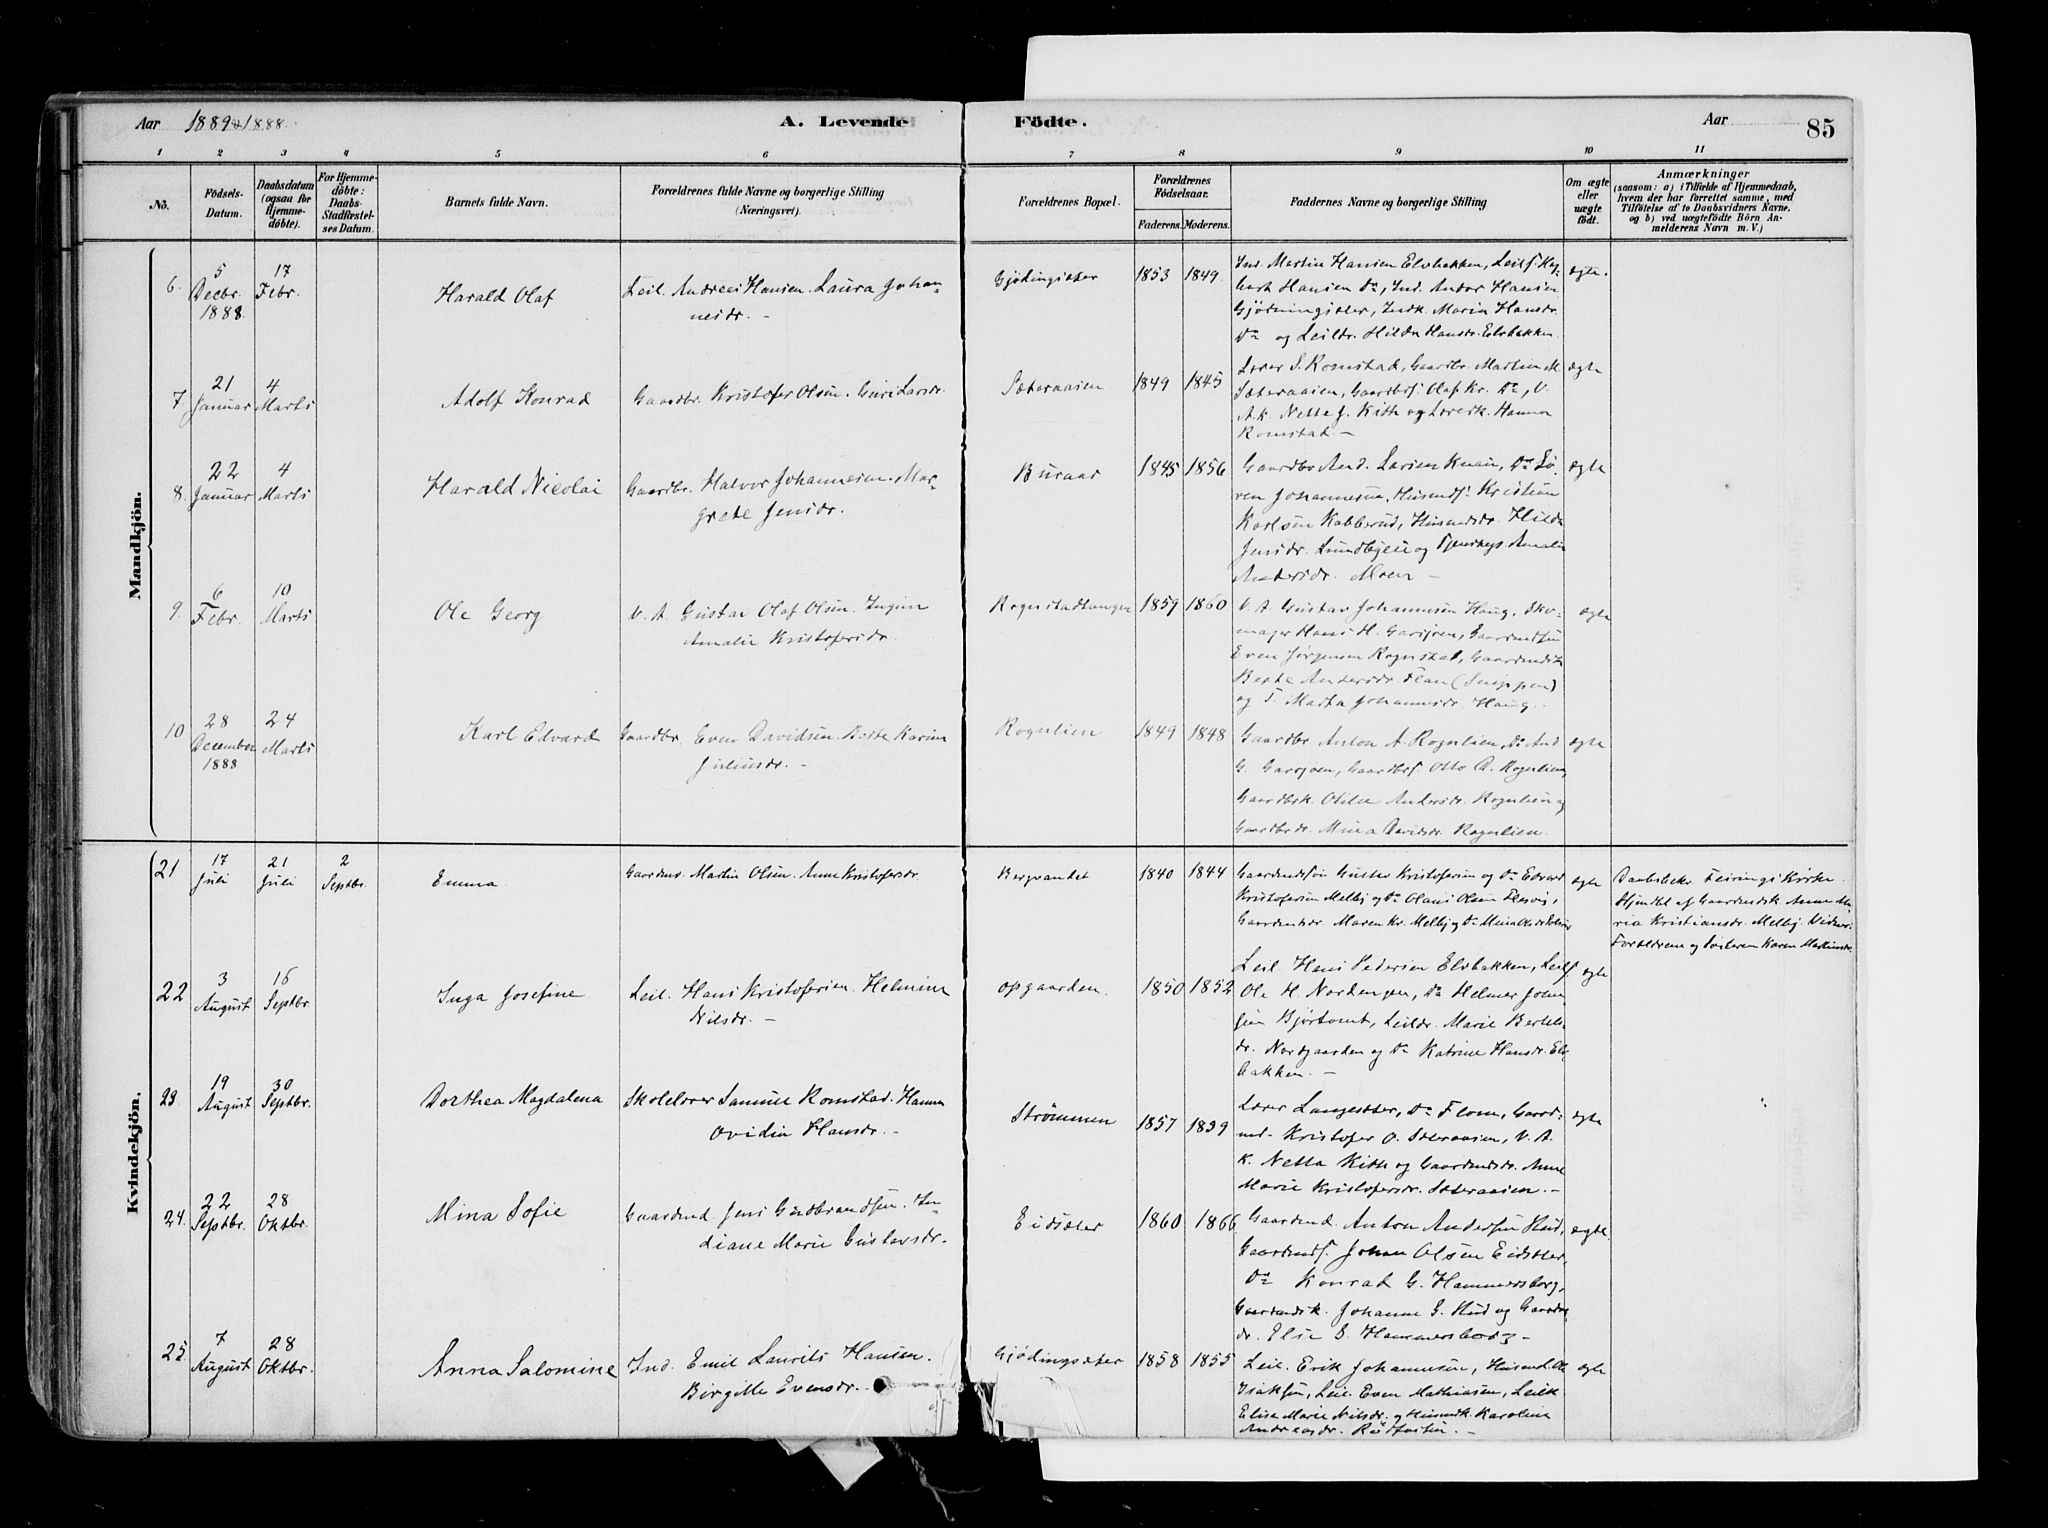 Aar 1889 & 1888.
A. Levende Födte.
Aar 85
1 2 3 4 5 6 7 8 9 10 11
No.
Födsels-Datum.
Daabsdatum (ogsaa for Hjemme-döbte).
For Hjemme-döbte: Daabs-Stadfæstel-ses Datum.
Barnets fulde Navn.
Forældrenes fulde Navne og borgerlige Stilling (Næringsvei).
Forældrenes Bopæl.
Forældrenes Födselsaar.
Faderens. Moderens.
Faddernes Navne og borgerlige Stilling
Om ægte eller uægte födt.
Anmærkninger
(saasom: a) i Tilfælde af Hjemmedaab,
hvem der har forrettet samme, med
Tilföielse af to Daabsvidners Navne,
og b) ved uægtefödte Börn An-
melderens Navn m. V.)
Mandkjön.
6. 5 Decbr. 1888. 17 Febr. Harald Olaf
Leil. Andreas Hansen. Laura Johan-
nesdr. –
Gjödingsæter 1853 1849
Ind. Martin Hansen Elvbakken, Leilf.
Hansen Do, Ind. Andor Hansen
Gjödningsæter, Indk. Maria Hansdr.
Do og Leildr. Hilda Hansdr. Elvbakken
ægte.
7 21 Januar 4 Marts Adolf Konrad
Gaardbr. Kristofer Olsen. Guri Larsdr.
Sæteraasen 1849 1845
Lærer S. Romstad, Gaardbr. Martin M.
Sæteraasen, Gaardbrf. Olaf Kr. Do, V.
A. k. Nette J. Kith og Lærerk. Hanna
Romstad. –
ægte
8. 22 Januar 4 Marts Harald Nicolai
Gaardbr. Halvor Johannesen. Mar-
grete Jensdr.
Buraas 1845 1856
Gaardbr. And. Larsen Knai, Do Sö-
ren Johannesen, Husmdf. Kristian
Karlsen Kabberud, Husmdsdr. Hilda
Jensdr. Lundbyeie og Tjenstpg. Amalie
Andersdr. Moen –
ægte
9. 6 Febr. 10 Marts Ole Georg
V. A. Gustav Olaf Olsen. Ingine
Amalie Kristofersdr.
Rognstadtangen 1859 1860
V. A. Gustav Johannesen Haug, Sko-
mager Hans H. Garsjøen, Gaardmdsøn
Even Jørgensen Rognstad, Gaardmdsk.
Berte Andersdr. Flaen (Sneppen)
og T. Marta Johannesdr. Haug.
ægte
10 28 December 1888 24 Marts Karl Edvard
Gaardbr. Even Davidsen. Berte Karine
Juliusdr. –
Rognlien 1849 1848
Gaardbr. Anton A. Rognlien, Do And
G. Garsjøen, Gaardbrf. Otto A. Rognlien,
Gaardbrk. Otilie Andersdr. Rognlien og
Gaardbrdr. Mina Davidsdr. Rognlien.
ægte
Kvindekjön.
21 17 Juli 21 Juli 2 Septbr. Emma
Gaardmd. Martin Olsen. Anne Kristofersdr.
Bergsandet 1840 1844
Gaardmdsøn Gustav Kristofersen og Do Edvard
Kristofersen Melby og Do Olaus Olsen Flesvig,
Gaardmdsdr. Maren Kr. Melby og Do Mina
ægte
Daabsbekr. i Feirings Kirke.
Hjmdbt af Gaardmdsk. Anne Ma-
ria Kristiansdr. Melby. Vidner:
Forældrene og Søsteren Karen Martinsdr.
22 3 August 16 Septbr. Inga Josefine
Leil. Hans Kristofersen. Helmine
Nilsdr. –
Opgaarden. 1850 1852
Leil. Hans Pedersen Elvbakken, Leilf.
Ole H. Nordengen, Do Helmer Johan-
sen Bjørtomt, Leildr. Marie Bertels-
dr. Nordgaarden og Do Katrine Hansdr. Elv-
bakken. –
ægte
23. 19 August 30 Septbr. Dorthea Magdalena
Skolelærer Samuel Romstad. Hanna
Ovidia Hansdr. –
Strömmen 1857 1839
Lærer Langsæter, Do Flom, Gaard-
md. Kristofer O. Sæteraasen, V. A.
k. Netta Kith og Gaardmdsdr. Anne
Marie Kristofersdr. Sæteraasen. –
ægte
24. 22 Septbr. 28 Oktbr. Mina Sofie
Gaardmd. Jens Gudbrandsen. In-
diane Marie Gustavsdr.
Eidsæter 1860 1866
Gaardmd. Anton Andersen Hud,
Gaardmdf. Johan Olsen Eidsæter,
Do Konrad G. Hammersborg,
Gaardmdsk. Johanne G. Hud og Gaardm-
dr. Elise G. Hammersborg –
ægte.
25 7 August 28 Oktbr. Anna Salomine
Ind. Emil Laurits Hansen.
Birgitte Evensdr. –
Gjödingsæter 1858 1855
Leil. Erik Johannesen, Husmd. Ole
Isaksen, Leil. Even Mathiasen, Leilk
Elise Marie Nilsdr. og Husmdk. Karoline
Andreasdr. Rödfosseie. –
ægte